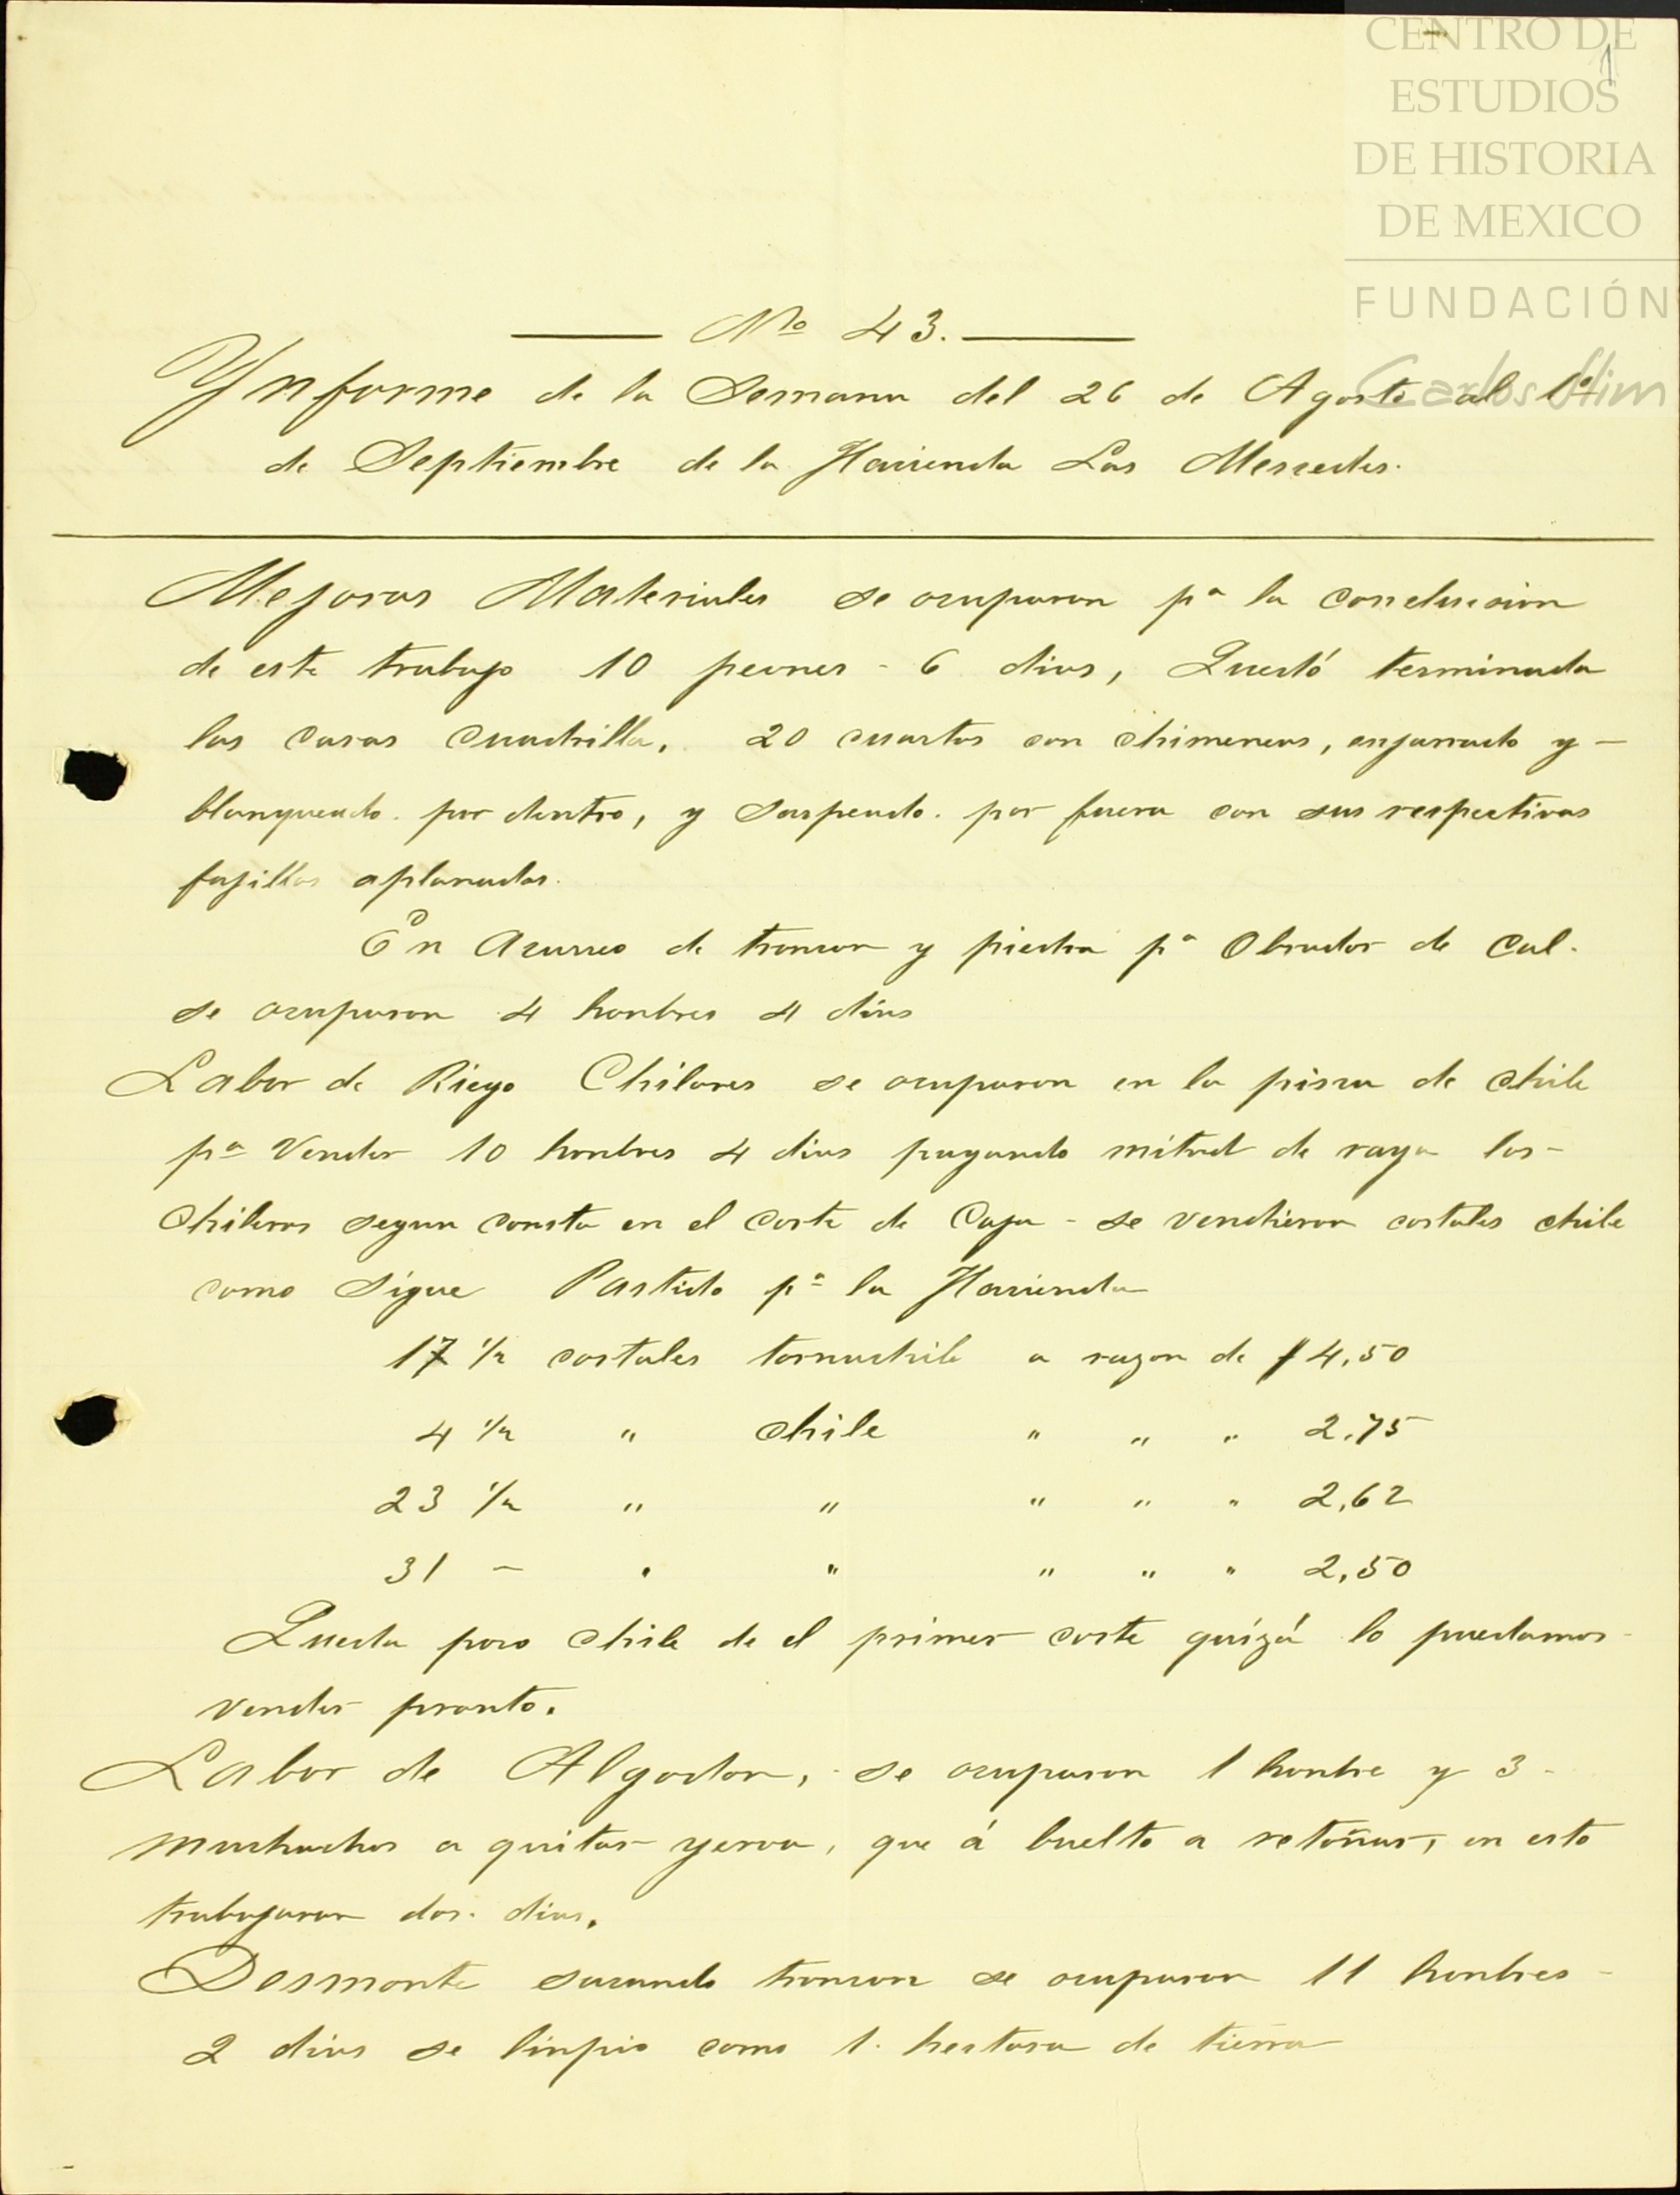 CENTRO DE
ESTUDIOS
DE HISTORIA
DE MEXICO
FUNDACIÓN
Carlos Slim
1
Nº 43.
Ynforme de la Semana del 26 de Agosto al 1º
de Septiembre de la Hacienda Las Mercedes.
Mejoras Materiales se ocuparon pª la conclucion
de este trabajo 10 peones - 6 dias, Quedó terminada
las casas cuadrilla, 20 cuartos con chimeneas, enjarrado y -
blanqueado. por dentro, y saspeado. por fuera con sus respectivas
fajillas aplanadas.
En Acarreo de troncon y piedra pª Obrador de Cal.
se ocuparon 4 honbres 4 dias
Labor de Riego Chilares se ocuparon en la pisca de chile
pª Vender 10 honbres 4 dias pagando mitad de raya los -
Chileros segun consta en el Corte de Caja - se vendieron costales chile
como sigue Partido pª la Hacienda
17 1/2 costales tornachile a razon de $4,50
4 1/2 " chile " " " 2.75
23 1/2 " " " " " 2,62
31 - " " " " " 2,50
Queda poco chile de el primer corte quizá lo puedamos -
vender pronto.
Labor de Algodon, - se ocuparon 1 honbre y 3 -
muchachos a quitar yerva, que á buelto a retoñar, en esto
trabajaron dos. dias.
Desmonte sacando troncon se ocuparon 11 honbres -
2 dias se linpio como 1. hectara de tierra